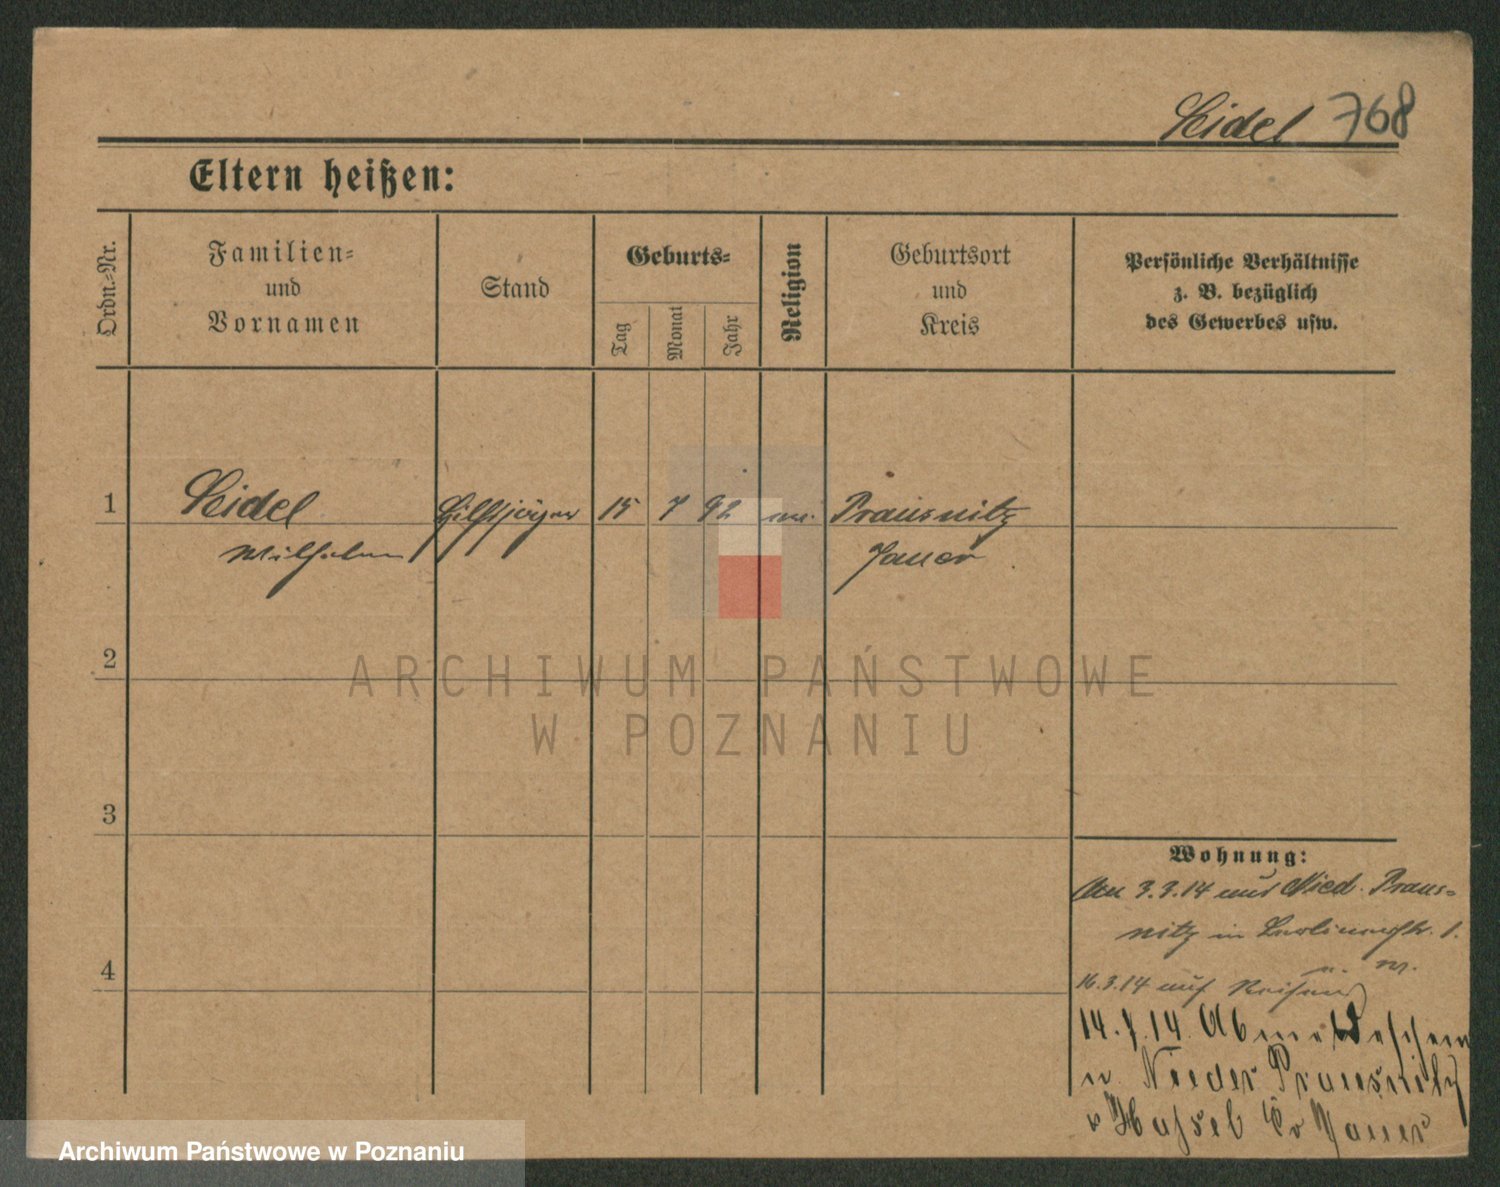 Seidel 768
Eltern heißen:
Ordn.-Nr.
Familien-
und
Vornamen
Stand
Geburts-
Tag
Monat
Jahr
Religion
Geburtsort
und
Kreis
Persönliche Verhältnisse
z. B. bezüglich
des Gewerbes usw.
1
Seidel
Wilhelm
Hilfsjäger
15
7
92
Prausnitz
Jauer
2
3
4
Wohnung:
3.3.14 aus Nied. Praus-
nitz in 1.
16.3.14 auf
14.7.14 Abmeldeschein
n. Nieder Prausnitz
Jauer
ARCHIWUM PAŃSTWOWE
W POZNANIU
Archiwum Państwowe w Poznaniu